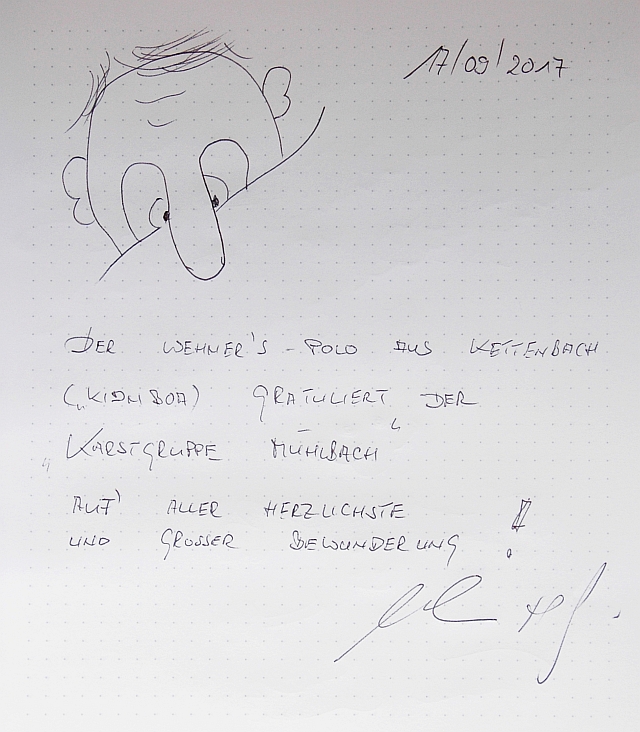 17/09/2017
DER WEHNER'S-POLO AUS KETTENBACH
("KIDNBOA) GRATULIERT DER
"KARSTGRUPPE MÜHLBACH"
AUF' ALLER HERZLICHSTE
UND GROSSER BEWUNDERUNG !